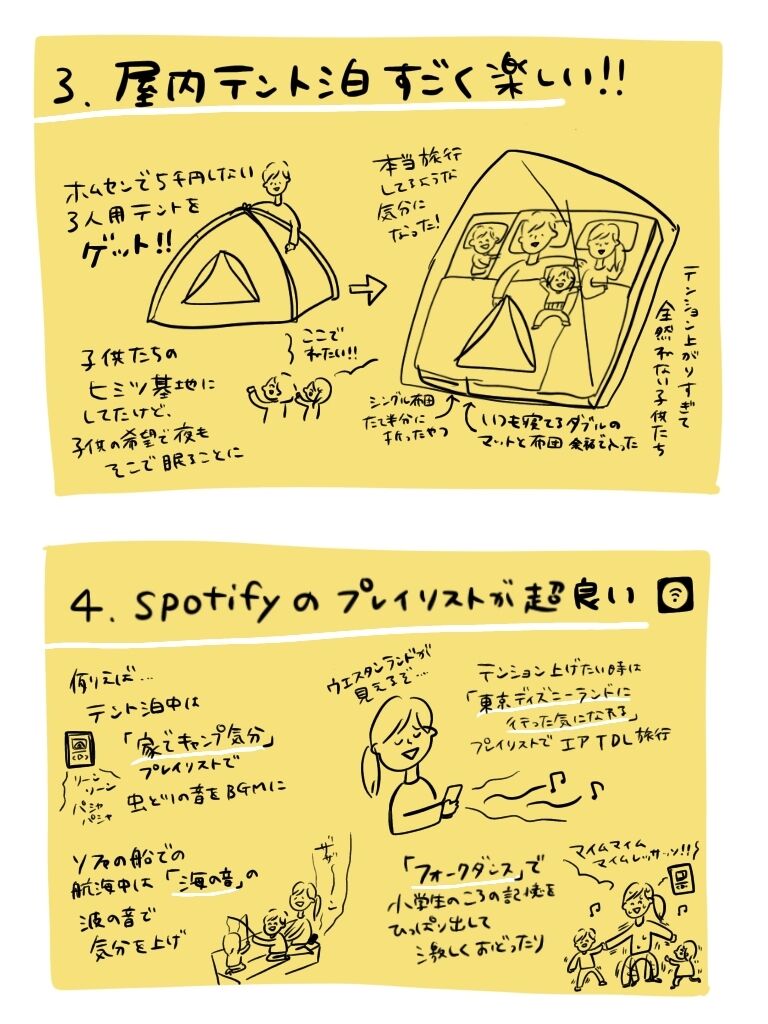 3. 屋内テント泊すごく楽しい!!
ホムセンで5千円しない
3人用テントを
ゲット!!
本当旅行
してるような
気分に
なった!
子供たちの
ヒミツ基地に
してたけど、
子供の希望で夜も
そこで眠ることに
ここで
ねたい!!
テンション上がりすぎて
全然ねない子供たち
シングル布団
たて半分に
折ったやつ
いつも寝てるダブルの
マットと布団 余裕で入った
4. Spotifyのプレイリストが超良い
例えば…
テント泊中は
「家でキャンプ気分」
プレイリストで
虫とりの音をBGMに
リーン
リーン
パシャ
パシャ
ウエスタンランドが
見えるぞ…
テンション上げたい時は
「東京ディズニーランドに
行った気になれる」
プレイリストでエアTDL旅行
ソファの船での
航海中は「海の音」の
波の音で
気分を上げ
「フォークダンス」で
小学生のころの記憶を
ひっぱり出して
激しくおどったり
マイムマイム
マイムレッサッソ!!